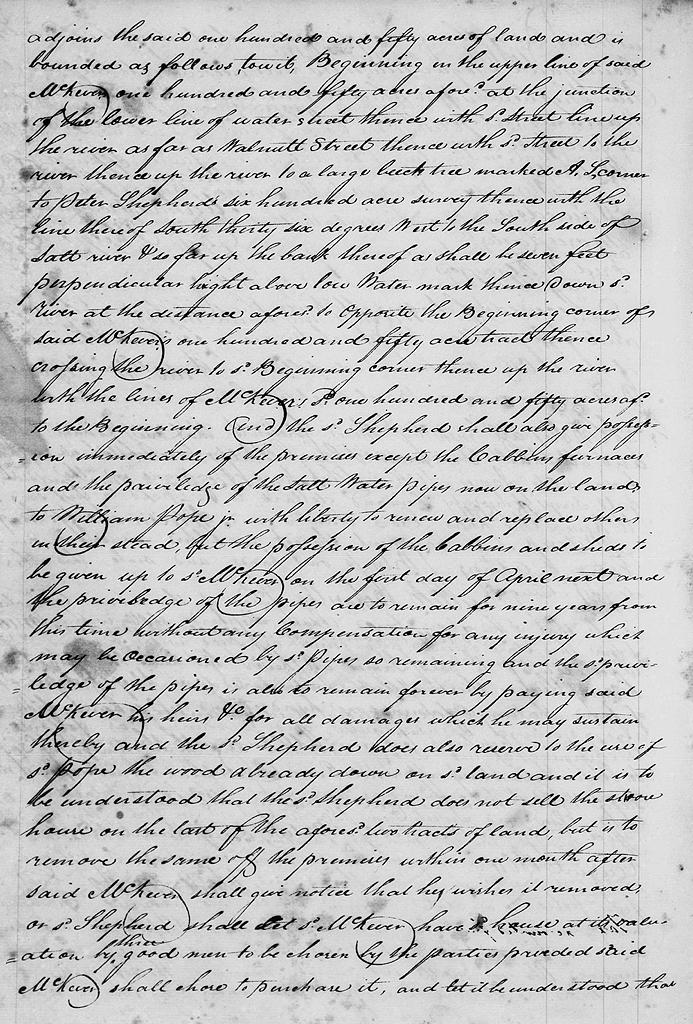 adjoins the said one hundred and fifty acres of land and is
bounded as follows, towit, Beginning in the upper line of said
McKever one hundred and fifty acres afores.d at the junction
of the lower line of water street thence with s.d Street line up
the river as far as Walnutt Street thence with s.d Street to the
river thence up the river to a large beech tree marked A. S. corner
to Peter Shepherds six hundred acre survey thence with the
line thereof South thirty six degrees West to the South side of
Salt river & so far up the bank thereof as shall be seven feet
perpendicular hight above low Water mark thence down s.d
river at the distance afores.d to opposite the Beginning corner of
said McKever's one hundred and fifty acre tract thence
crossing the river to s.d Beginning corner thence up the river
with the lines of McKever's s.d one hundred and fifty acres af.d
to the Beginning. And the s.d Shepherd shall also give possess-
=ion immediately of the premises except the Cabbins furnaces
and the priviledge of the Salt Water pipes now on the land
to William Pope jr with liberty to renew and replace others
in their stead, but the possession of the Cabbins and sheds to
be given up to s.d McKever on the first day of April next and
the priviledge of the pipes are to remain for nine years from
this time without any Compensation for any injury which
may be Occasioned by s.d Pipes so remaining and the s.d privi-
=ledge of the pipes is also to remain forever by paying said
McKever his heirs &c for all damages which he may sustain
thereby and the s.d Shepherd does also reserve to the use of
s.d Pope the wood already down on s.d land and it is to
be understood that the s.d Shepherd does not sell the stone
house on the last of the afores.d two tracts of land, but is to
remove the same off the premises within one month after
said McKever shall give notice that he wishes it removed
or s.d Shepherd shall let s.d McKever have house at its valu-
=ation by three good men to be chosen by the parties provided said
McKever shall chose to purchase it, and let it be understood that